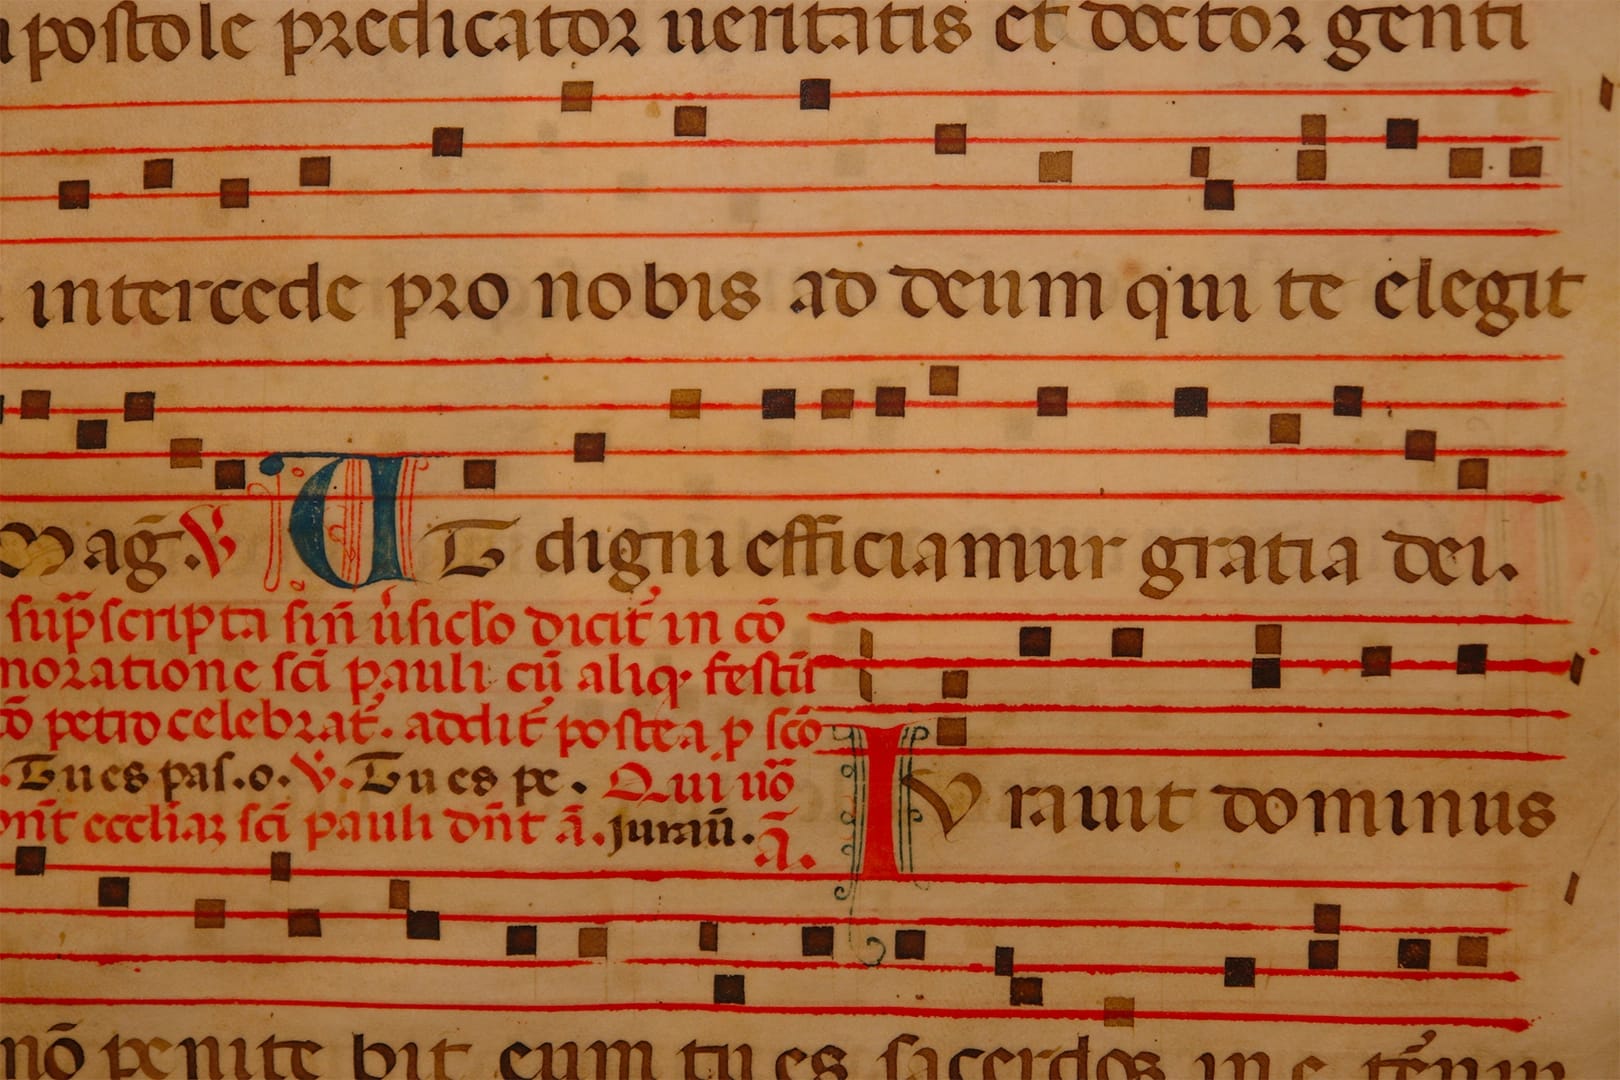 apostole predicator ueritatis et doctor genti
intercede pro nobis ad deum qui te elegit
Mag̃. V̓. UT digni efficiamur gratia dei.
sup̃scripta sin̄ ũsiclo dicit̃ in cō
moratione sc̄i pauli cū aliq festū
cō petro celebrat̃. addit̃ postea p̱ scō
Tu es pas.o. V̓. Tu es pe. Qui uō
ōnt eccliaꝝ sc̄i pauli dn̄t ā. jurauī.
ā.
IVrauit dominus
nō penite bit eum tu es sacerdos in e tẽnum